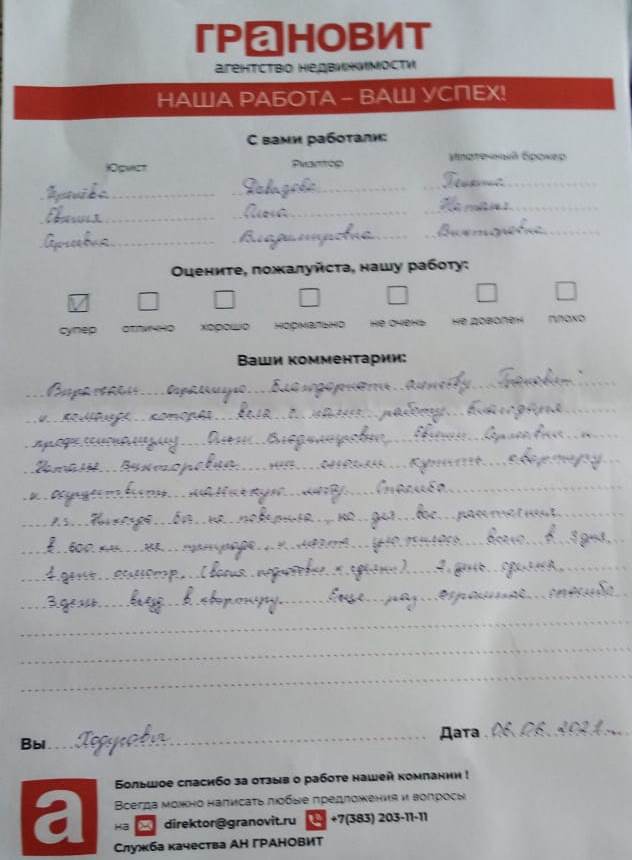 ГРАНОВИТ
агентство недвижимости
НАША РАБОТА – ВАШ УСПЕХ!
С вами работали:
Юрист Риэлтор Ипотечный брокер
Давыдова
Евгения Ольга Наталья
Сергеевна Владимировна Викторовна
Оцените, пожалуйста, нашу работу:
супер отлично хорошо нормально не очень не доволен плохо
Ваши комментарии:
Выражаем огромную благодарность агенству "Грановит"
и команде которая вела с нами работу. Благодаря
профессионализму Ольги Владимировны, Евгении Сергеевны и
Натальи Викторовны мы смогли купить квартиру
и осуществить маленькую мечту. Спасибо
P.S. Никогда бы не поверила, но для вас расстояния
в 600 км не преграда, и мечта уложилась всего в 3 дня.
1 день осмотр, (ваша подготовка к сделки) 2 день сделка,
3 день въезд в квартиру. Еще раз огромное спасибо
Вы Дата 06.06.2021г.
а
Большое спасибо за отзыв о работе нашей компании !
Всегда можно написать любые предложения и вопросы
на direktor@granovit.ru +7(383) 203-11-11
Служба качества АН ГРАНОВИТ